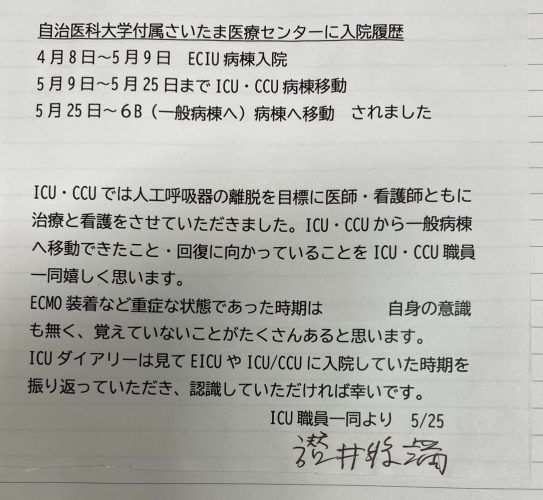 自治医科大学付属さいたま医療センターに入院履歴
4月8日～5月9日　ECIU病棟入院
5月9日～5月25日までICU・CCU病棟移動
5月25日～６B（一般病棟へ）病棟へ移動　されました
ICU・CCUでは人工呼吸器の離脱を目標に医師・看護師ともに
治療と看護をさせていただきました。ICU・CCUから一般病棟
へ移動できたこと・回復に向かっていることをICU・CCU職員
一同嬉しく思います。
ECMO装着など重症な状態であった時期は　　　　自身の意識
も無く、覚えていないことがたくさんあると思います。
ICUダイアリーは見てEICUやICU/CCUに入院していた時期を
振り返っていただき、認識していただければ幸いです。
ICU職員一同より　5/25
讃井